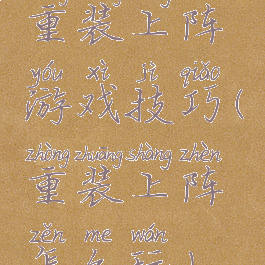 重装上阵
yóu xì jì qiǎo
游戏技巧(
zhòng zhuāng shàng zhèn
重装上阵
zěn me wán
怎么玩)